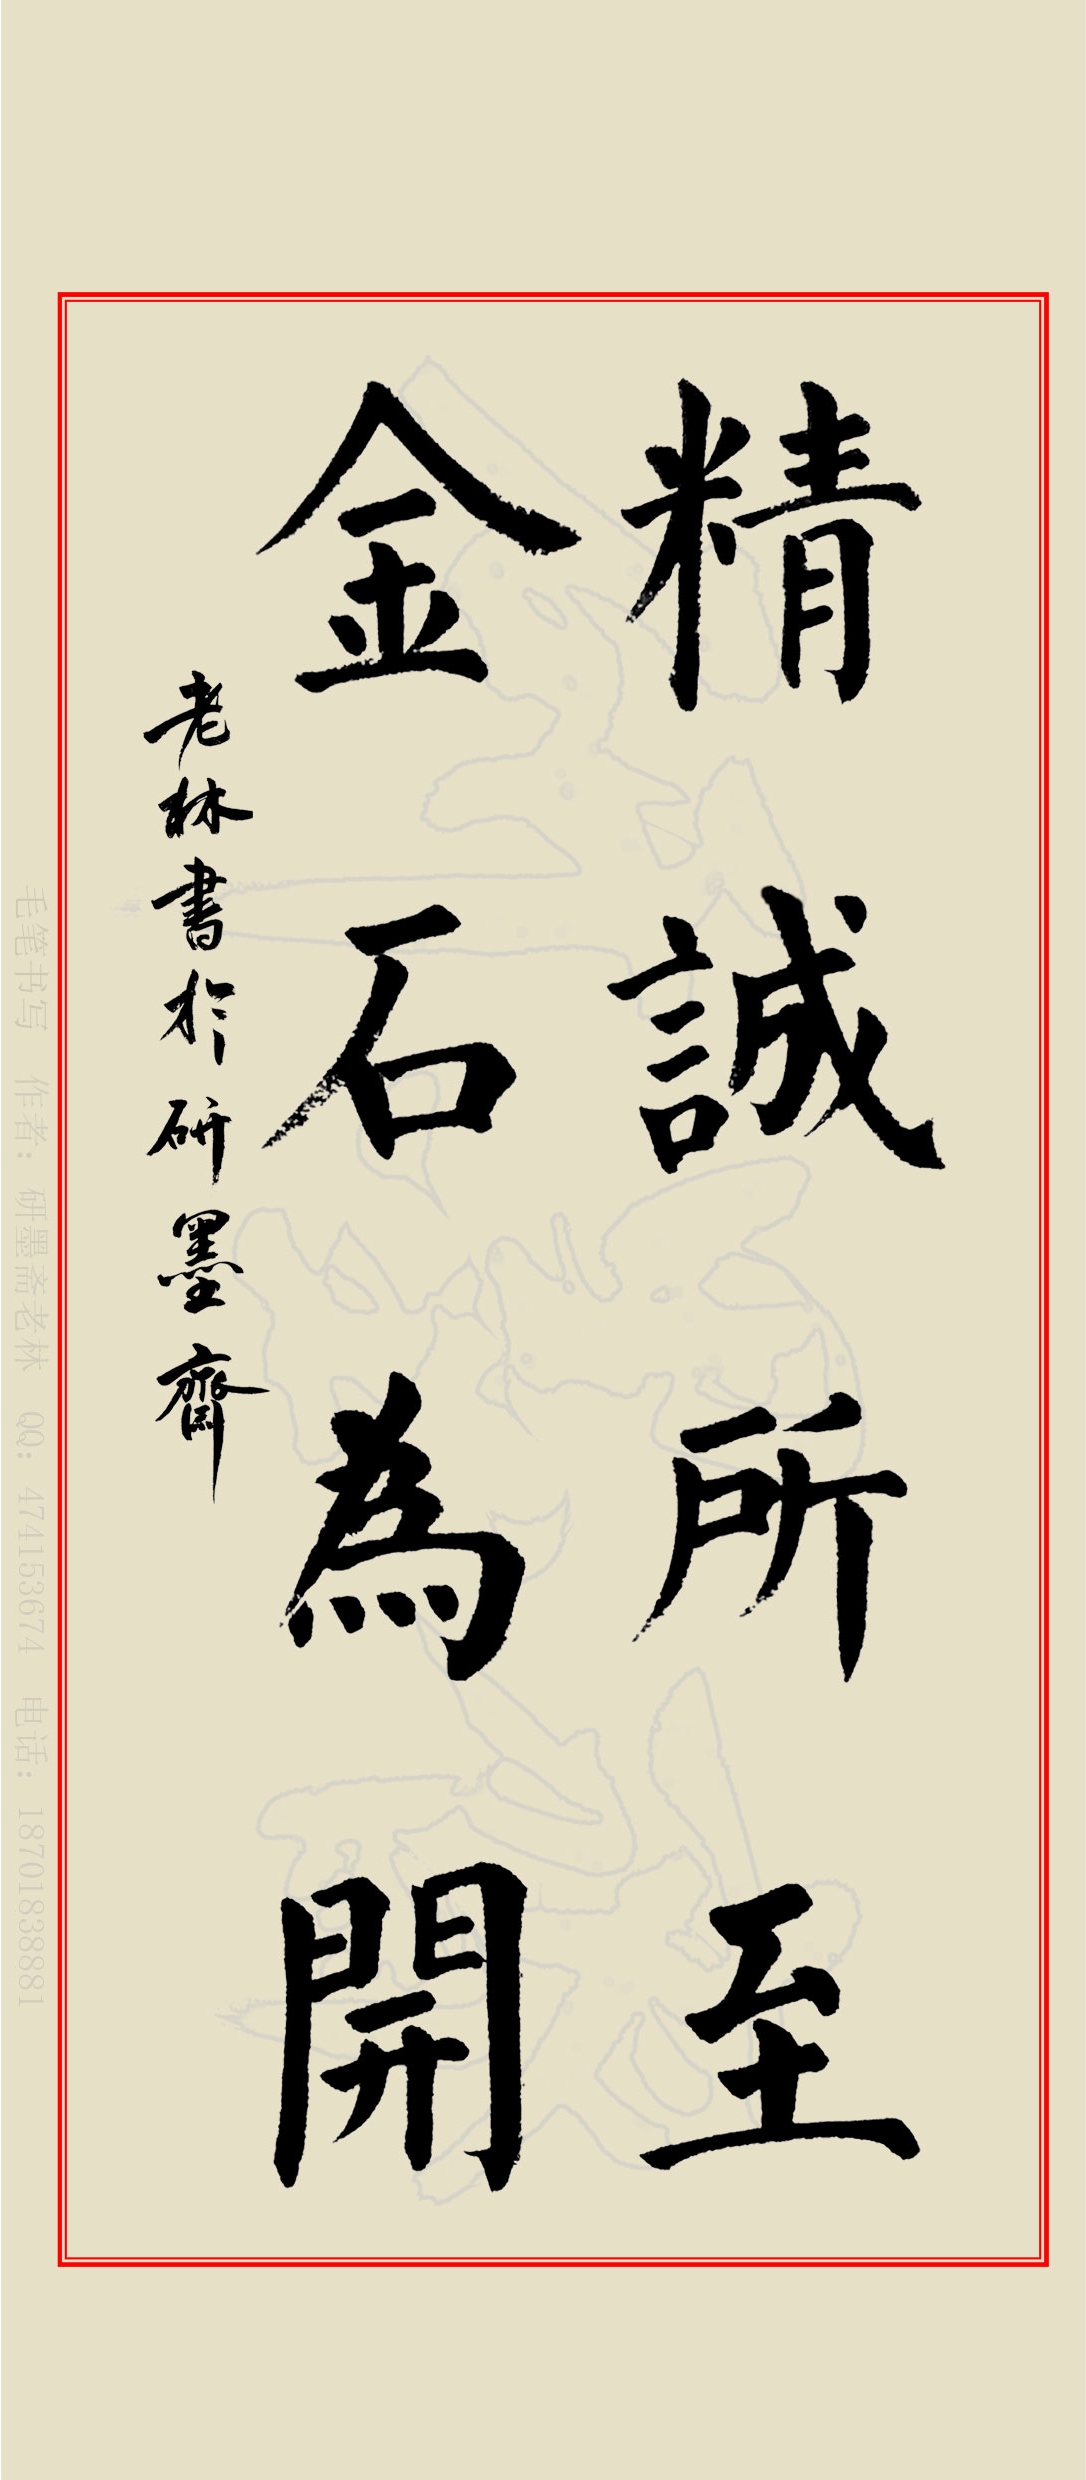 精誠所至
金石為開
老林書於研墨齋
毛笔书写 作者：研墨斋老林 QQ：474153674 电话：18701838881